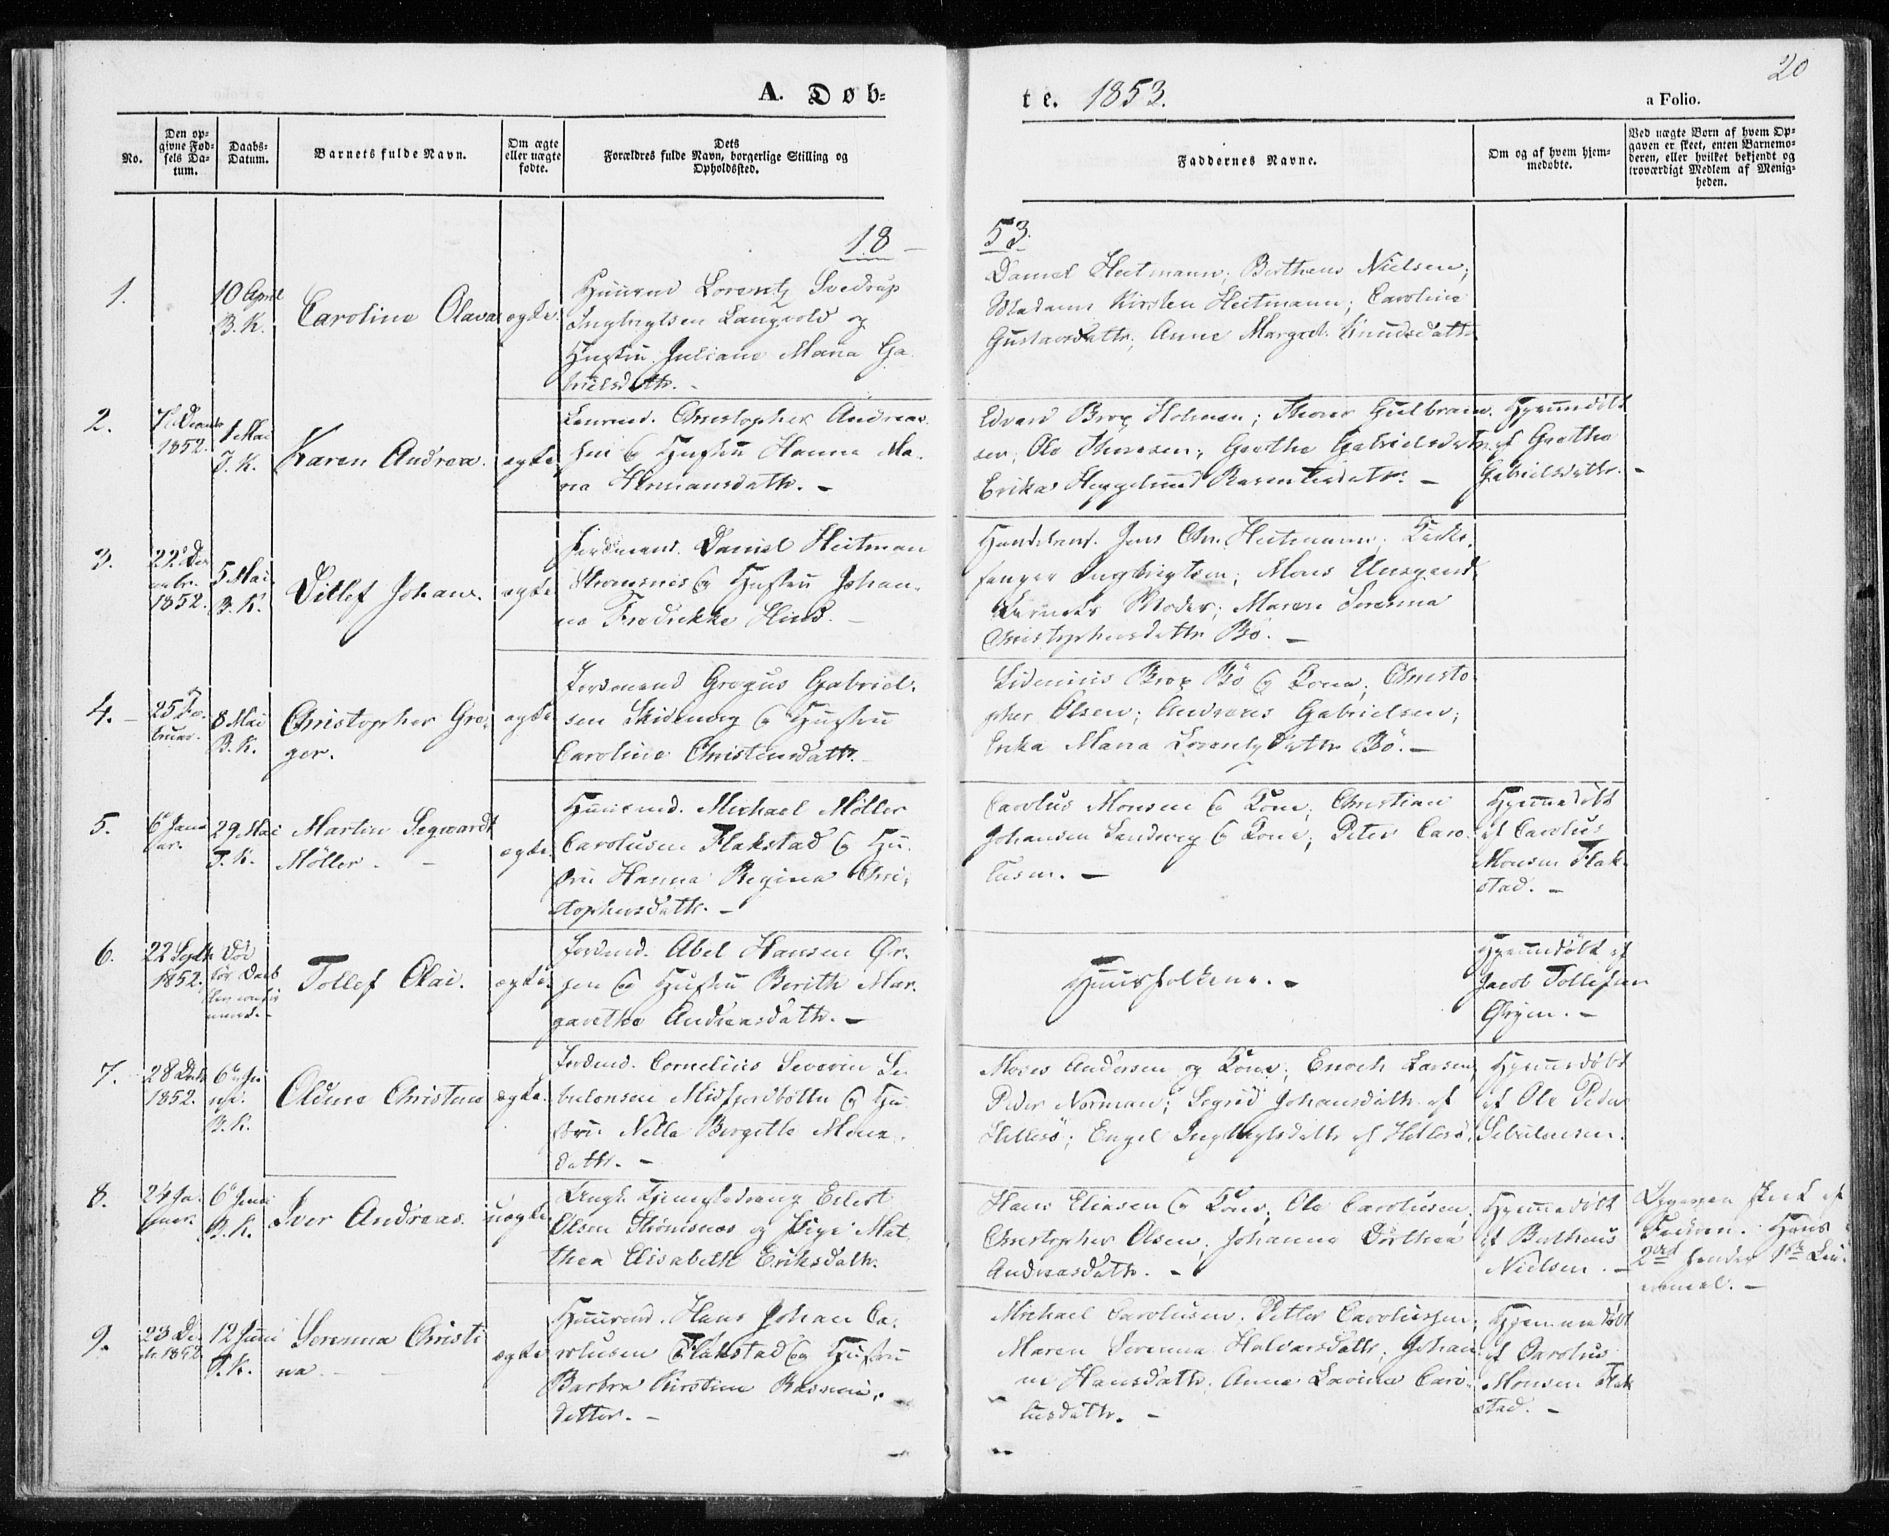 20
A. Døb-
te. 1853.
a Folio.
No.
Den op-
givne Fød-
sels Da-
tum.
Daabs-
Datum.
Barnets fulde Navn.
Om ægte
eller uægte
fødte.
Dets
Forældres fulde Navn, borgerlige Stilling og
Opholdssted.
Faddernes Navne.
Om og af hvem hjem-
medøbte.
Ved uægte Born af hvem Op-
gaven er skeet, enten Barnemo-
deren, eller hvilket bekjendt og
troværdigt Medlem af Menig-
heden.
18
53
1.
10 April
B. K.
Caroline Olava
ægte.
Lorentz
og
Hustru Juliane Maria Ga
brielsdatr.
Daniel Heitmann; Bertheus Nielsen;
Madame Kirsten Heitmann; Caroline
Gustavsdatr; Anne Margret Knudsdatr
2.
1852.
1 Mai
T. K.
Karen Andrea.
ægte
Christopher Andreas
sen & Hustru Hanna Ma-
ria Hermansdatr. –
Edvard Holmen; Thorer Gulbrand
sen; Ole Thoresen; Grethe Gabrielsdatr
Erika
Hjemmedøbt
af Grethe
Gabrielsdatr.
3.
22 De
cembr.
1852.
5 Mai
B. K.
Ditlef Johan.
ægte
Daniel Heitman
& Hustru Johan-
na Fredrikke Hind.
Jens Chr. Heitmann;
Ingbrigtsen; Mons
Moder; Maren Serenna
Christophersdatr Bö. –
4.
25 Fe
bruar.
8 Mai
B. K.
Christopher Gre-
ger.
ægte
Gregus Gabriel-
sen & Hustru
Caroline Christensdatr.
Bö & Kone; Christo
pher Olsen; Andreas Gabrielsen;
Erika Maria Lorentzdatr Bö. –
5.
6 Janu
ar.
29 Mai
T. K.
Martin Segwardt
Møller. –
ægte.
Michael Möller
Carolusen Flakstad & Hu-
stru Hanna Regina Chri-
stophersdatr. –
Carolus Monsen & Kone; Christian
Johansen & Kone; Peter Caro-
lusen. –
Hjemmedøbt
af Carolus
Monsen Flak-
stad. –
6.
22 Septb
1852.
Død
før Daab
Tollef Olai.
ægte
Abel Hansen Ør-
jen & Hustru Berith Mar-
garetha Andreasdatr. –
Huusfolkene. –
Hjemmedøbt af
Jacob Tollefsen
7.
28 Decb
1852.
6 Ju
ni.
B. K.
ægte.
Cornelius Severin Se-
bulonsen Midfjordbotten & Hu-
stru Nella Bergitte Mona-
datr. –
Moses Andersen og Kone; Enoch Larsen
Peder Norman; Sigrid Johansdatr af
Hillesö; Engel Ingbrigtsdatr af Hillesö.
Hjemmedøbt
af Ole Peder
Sebulonsen.
8.
24 Ja-
nuar.
6 Juni
B. K.
Iver Andreas.
uægte
Eilert
Olsen og Pige Mat-
thea Elisabeth Eriksdatr.
Hans Eliasen & Kone; Ole Carolusen;
Christopher Olsen; Johanna Dorthea
Andreasdatr. –
Hjemmedøbt
af Bertheus
Nielsen. –
Opgaven skeet af
Faderen. Hans
2det hendes 1ste Lei-
ermaal. –
9.
23 De-
cbr 1852
12 Juni
T. K.
Serenna Christi
na.
ægte
Hans Johan Ca-
rolusen Flakstad & Hustru
Barbra Kirstine
datter. –
Michael Carolusen; Petter Carolussen;
Maren Serenna Halvarsdatr; Johan
ne Hansdatr; Anna Lavina Caro-
lusdatr. –
Hjemmedøbt
af Carolus
Monsen Flak
stad. –